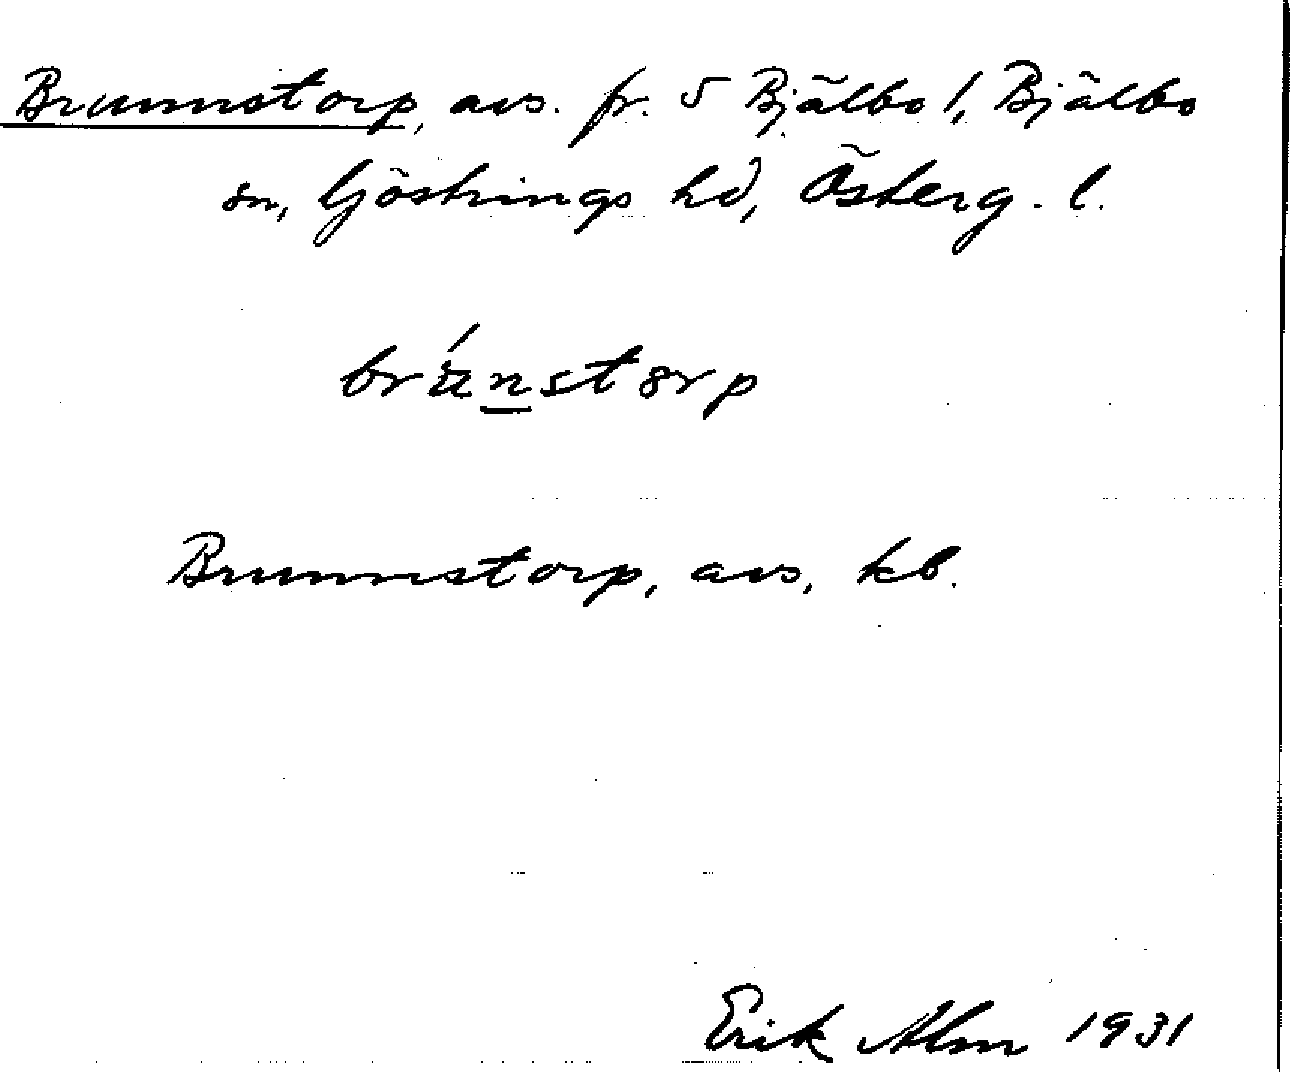 Brunnstorp, avs. fr. 5 Bjälbo 1, Bjälbo
sn, Göstrings hd, Österg. l.
Brunnstorp, avs, kb.
Erik Alm 1931